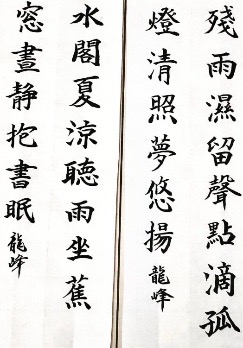 殘雨濕留聲點滴孤
燈清照夢悠揚 龍峰
水閣夏涼聽雨坐蕉
窓晝静抱書眠 龍峰